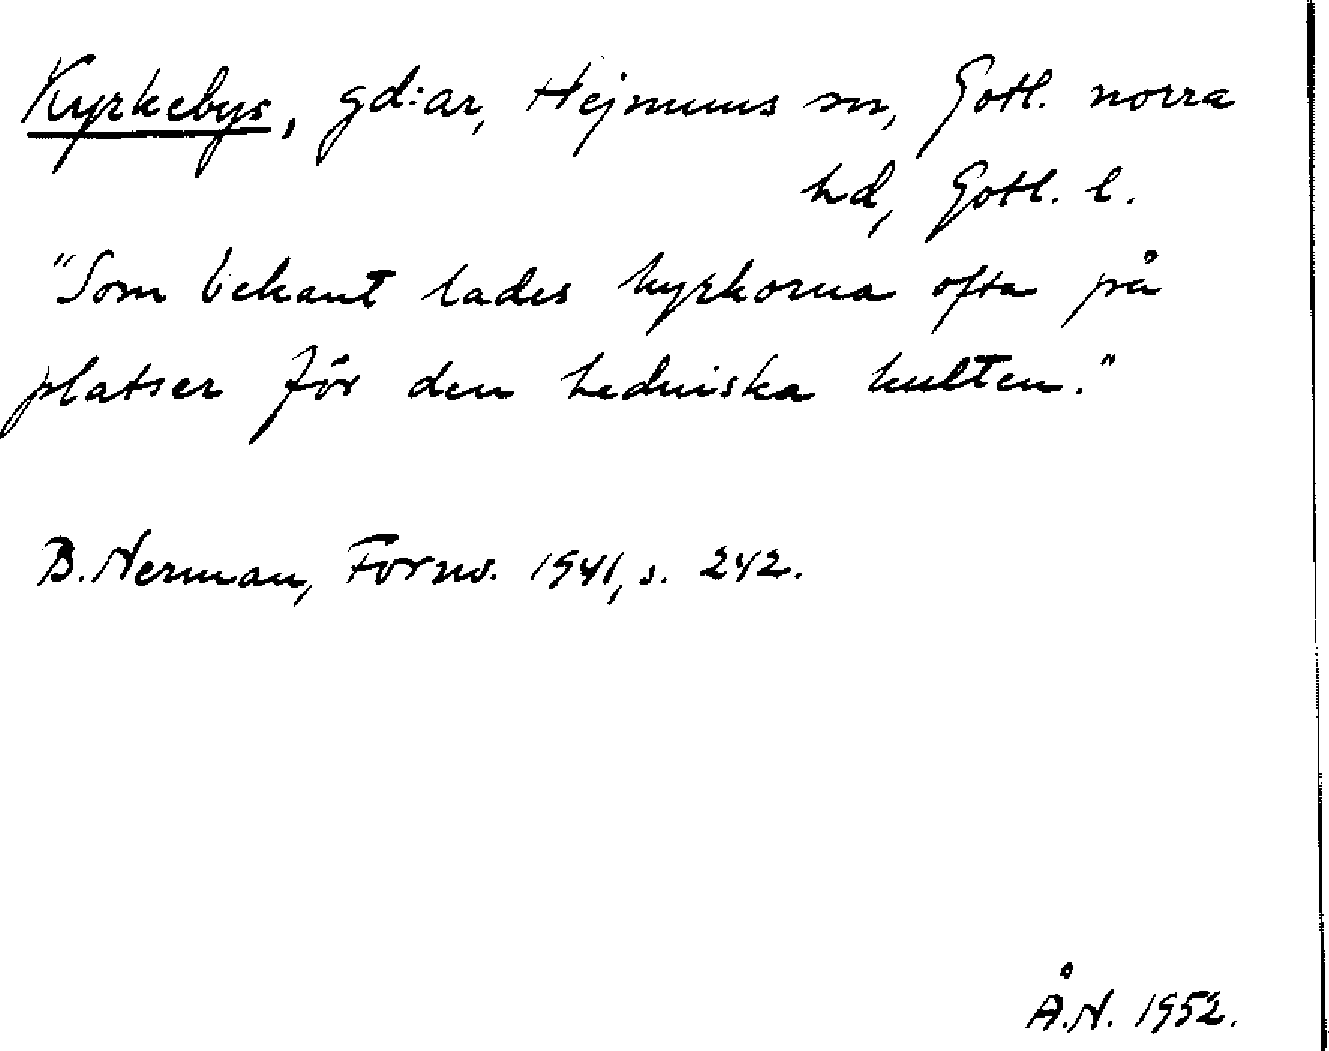 Kyrkebys, gd:ar, Hejnums sn, Gotl. norra
hd, Gotl. l.
"Som bekant lades kyrkorna ofta på
platser för den hedniska kulten."
B. Nerman, Fornv. 1941, s. 242.
Å.N. 1952.